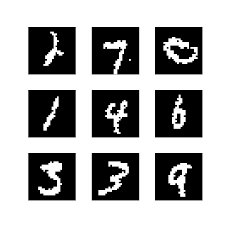 2 7 0
1 4 6
3 3 9